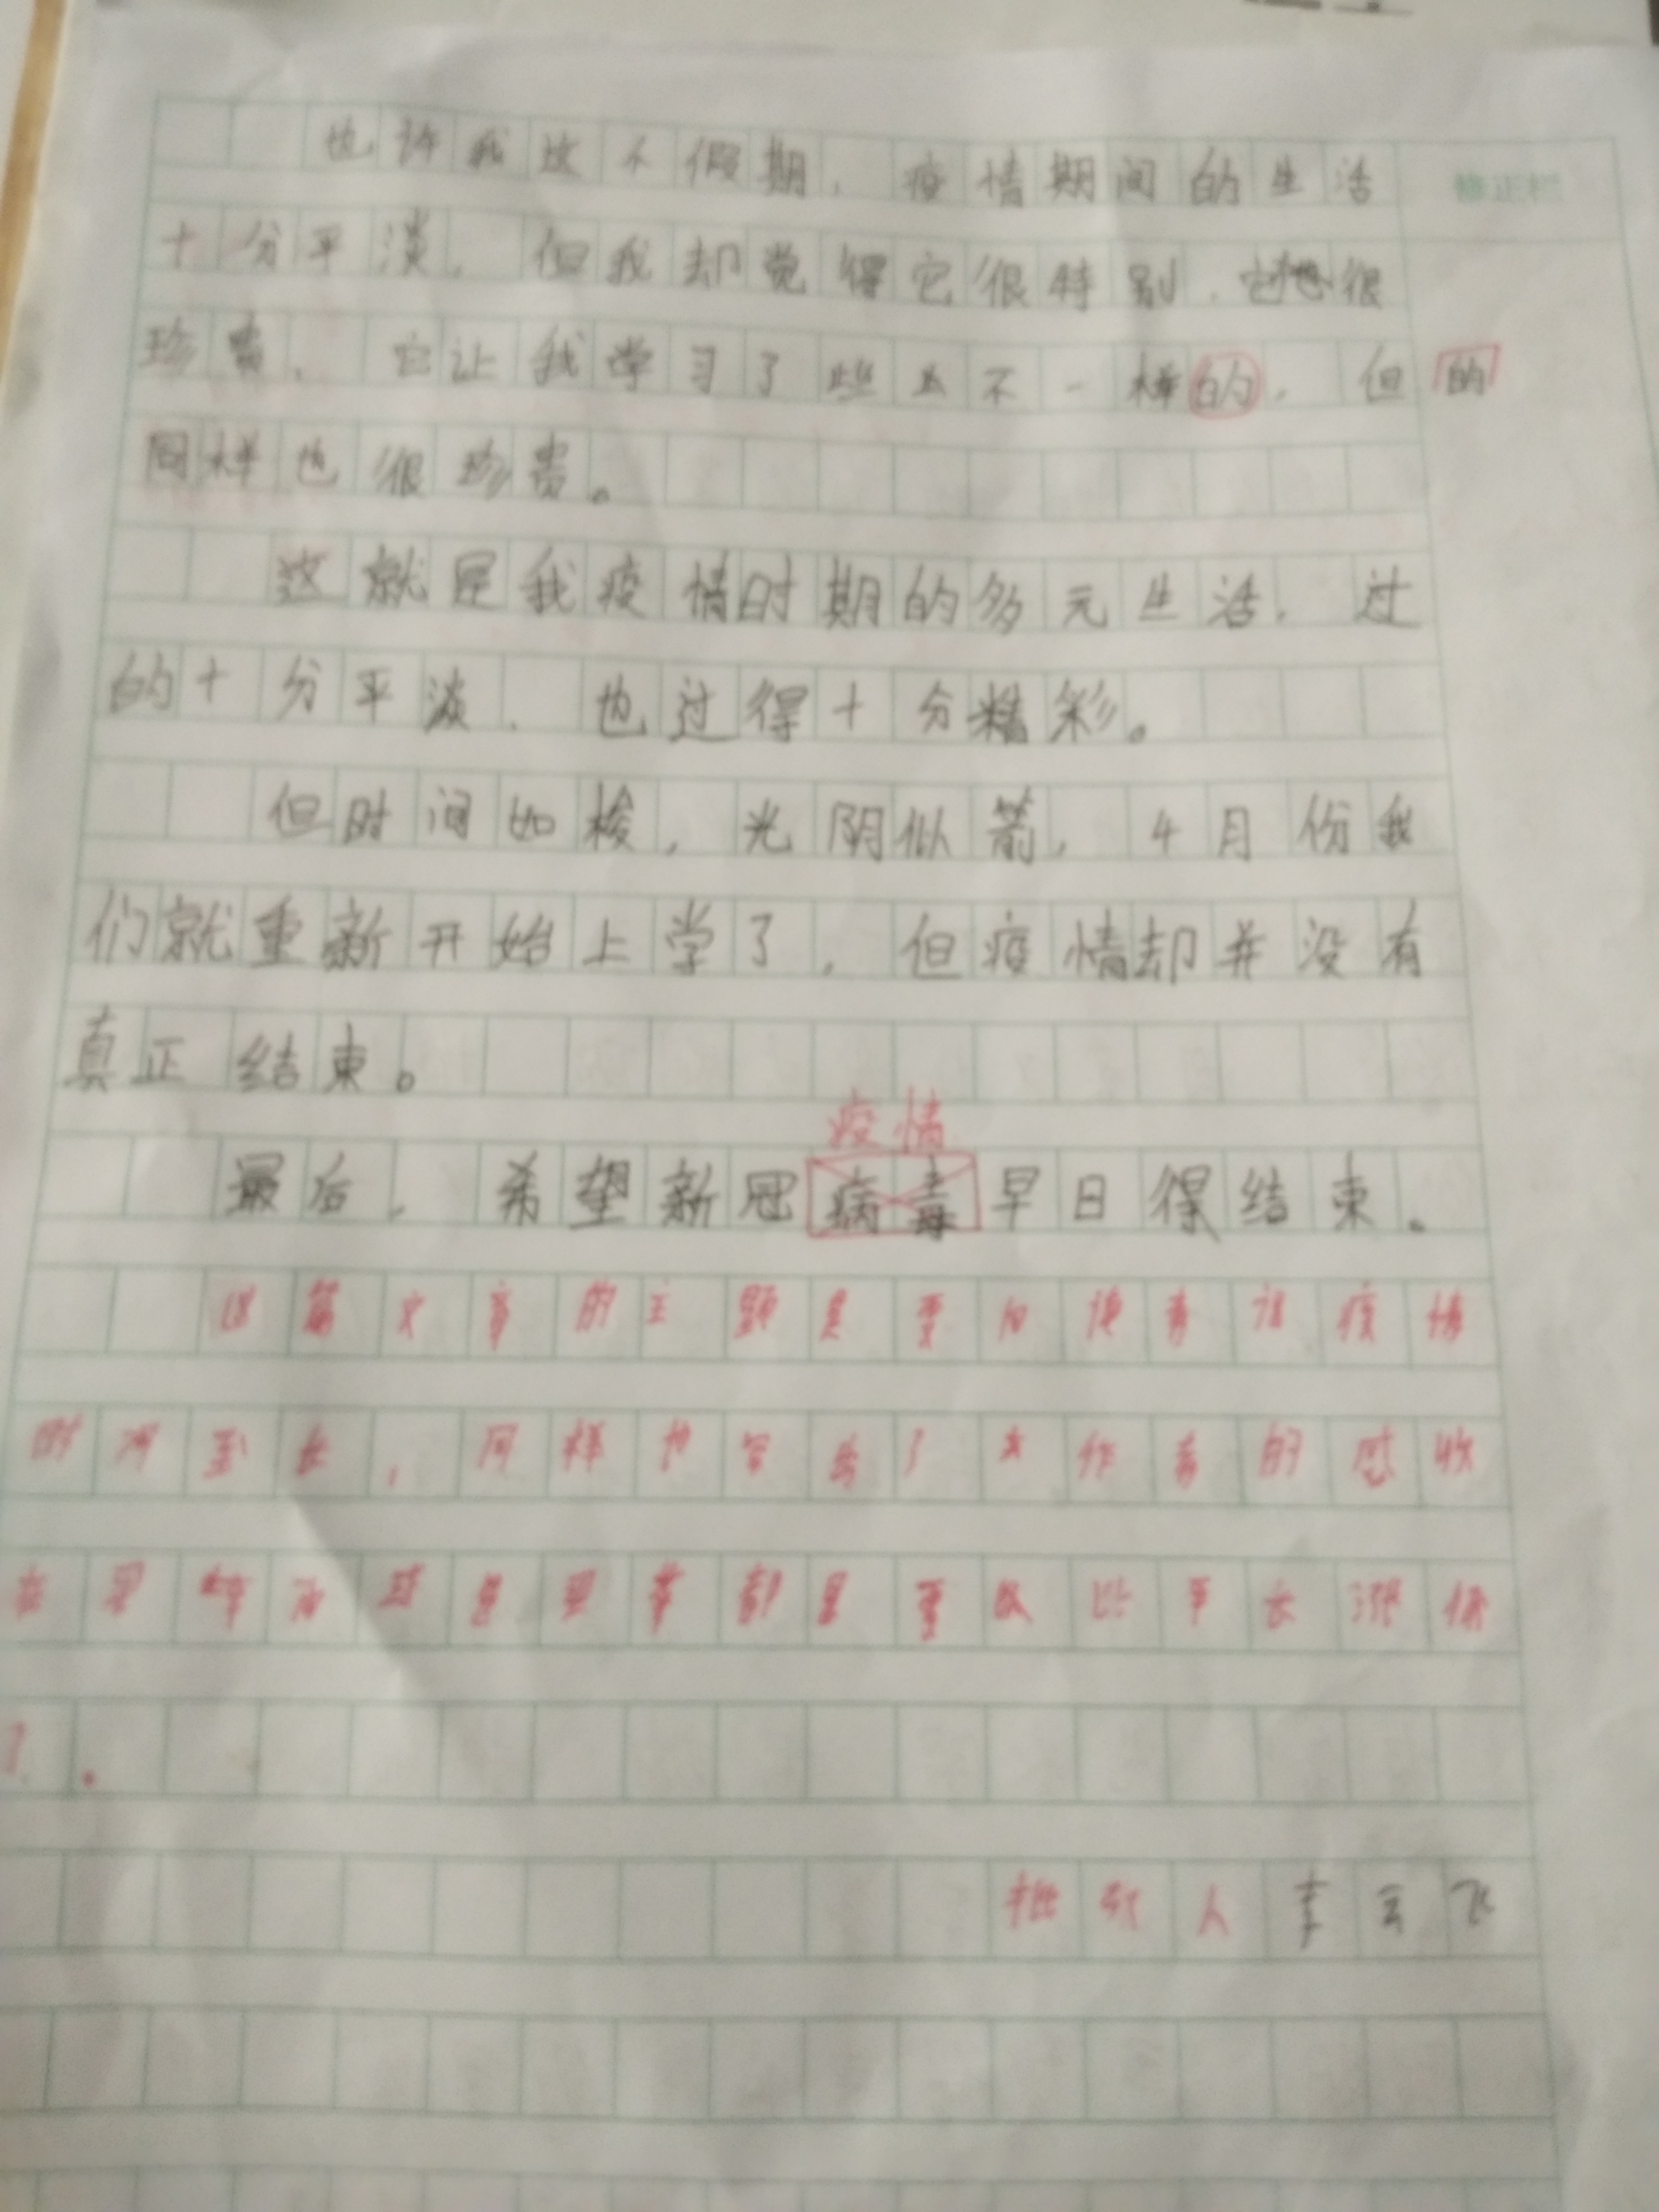 也许我这不假期，疫情期间的生活
修正栏
十分平淡，但我却觉得它很特别，它很
珍贵，它让我学习了些不一样的，但
的
同样也很珍贵。
这就是我疫情时期的多元生活，过
的十分平淡，也过得十分精彩。
但时间如梭，光阴似箭，4月份我
们就重新开始上学了，但疫情却并没有
真正结束。
疫情
最后，希望新冠病毒早日得结束。
这篇文章的主题是要疫情
，同样也写出了作者的感收
都是要
了。
批改人李云飞